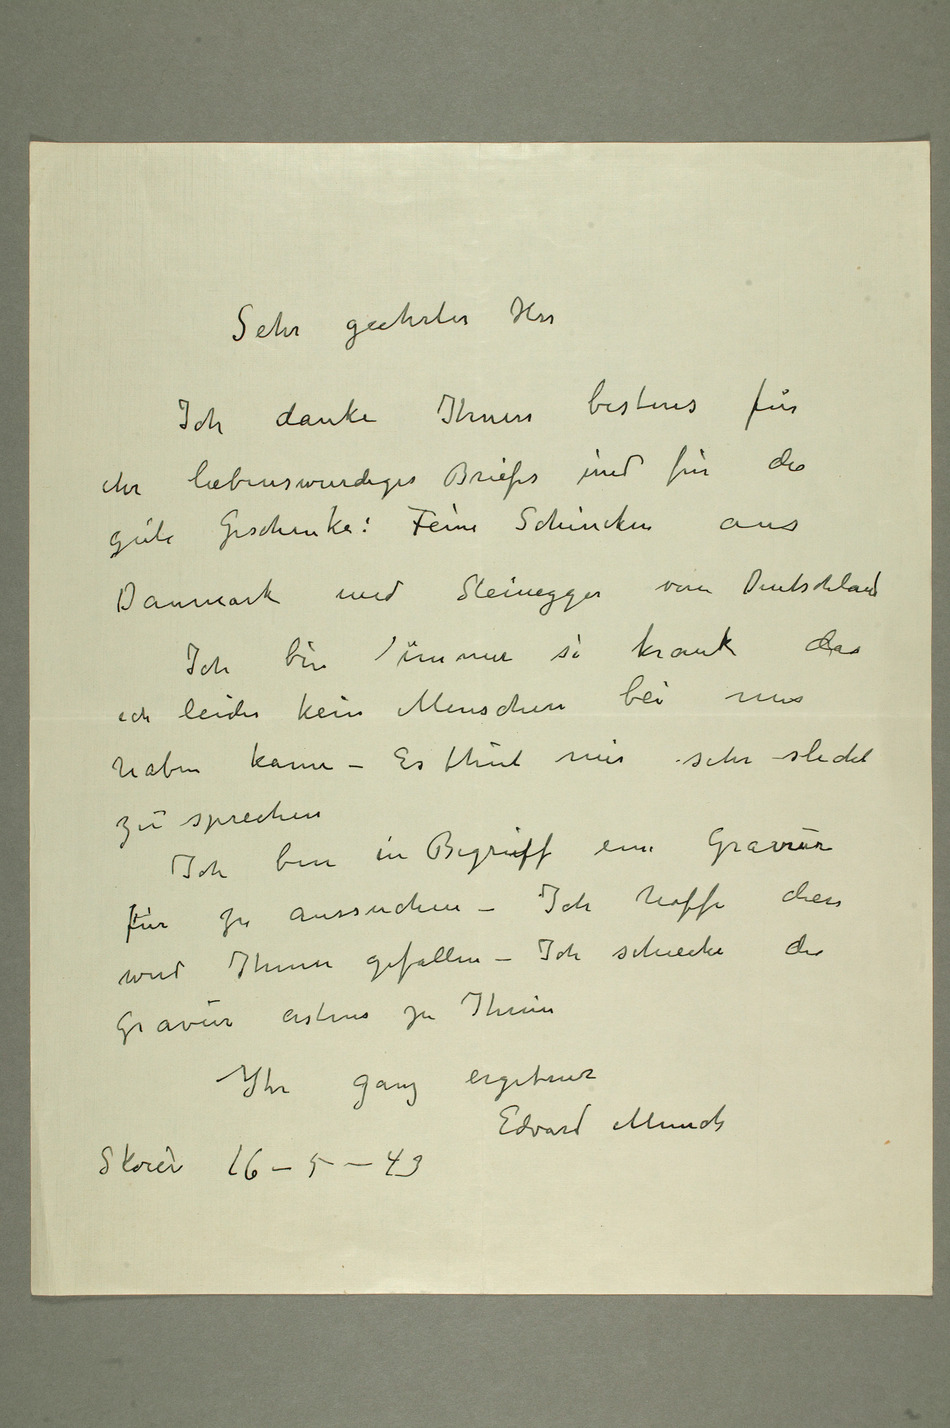 Sehr geehrter Herr
Ich danke Ihnen bestens für
ihr liebenswurdiges Briefes und für die
gute Geschenke: Feine Schincken aus
Danmark und Steinegger von Deutschland
Ich bin immer so krank das
ich leider kein Menschen bei mir
haben kann – Es thut mir sehr slecht
zu sprechen
Ich bin in Begriff eine Gravür
für zu aussuchen – Ich hoffe dies
wird Ihnen gefallen – Ich schicke die
Gravür erstens zu Ihnen
Ihr ganz ergebener
Edvard Munch
Skøien 16 – 5 – 43